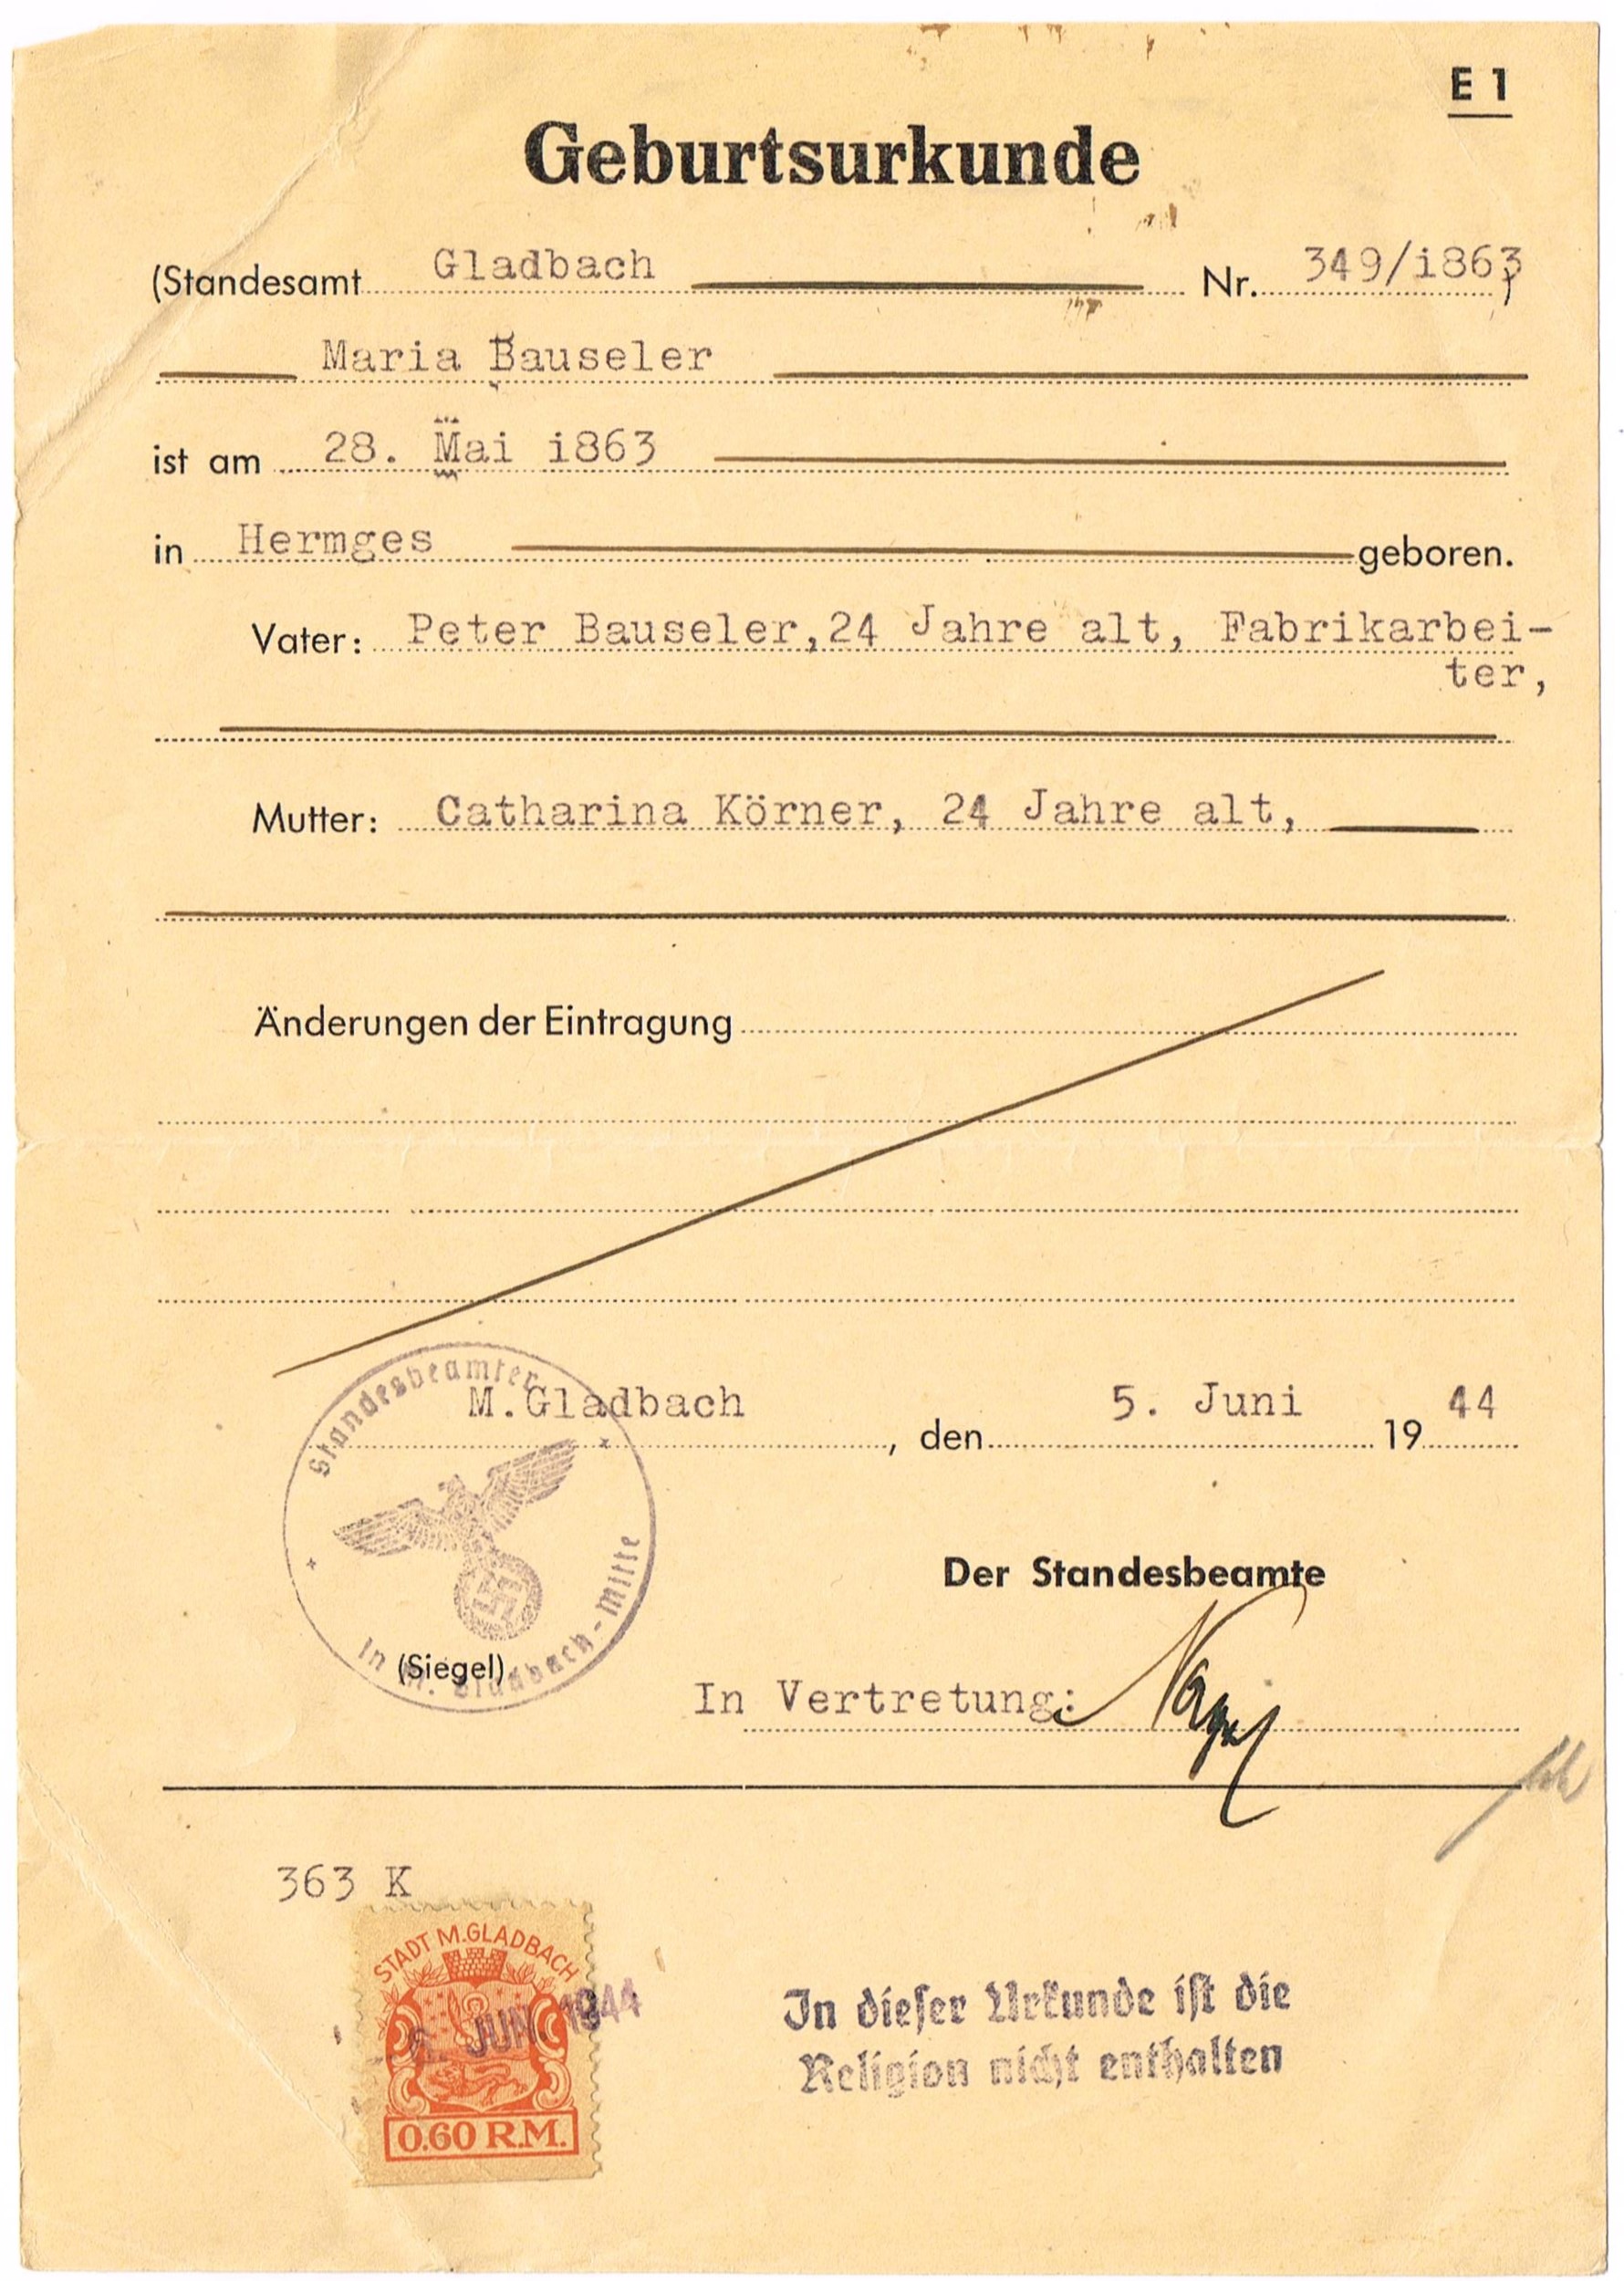 E 1
Geburtsurkunde
(Standesamt Gladbach Nr. 349/i863)
Maria Bauseler
ist am 28. Mai i863
in Hermges geboren.
Vater: Peter Bauseler,24 Jahre alt, Fabrikarbei-
ter,
Mutter: Catharina Körner, 24 Jahre alt,
Änderungen der Eintragung
Standesbeamter
M.Gladbach, den 5. Juni 1944
Der Standesbeamte
(Siegel)
In M. Gladbach-Mitte
In Vertretung:
363 K
STADT M.GLADBACH
JUN. 1944
0.60 R.M.
In dieser Urkunde ist die
Religion nicht enthalten